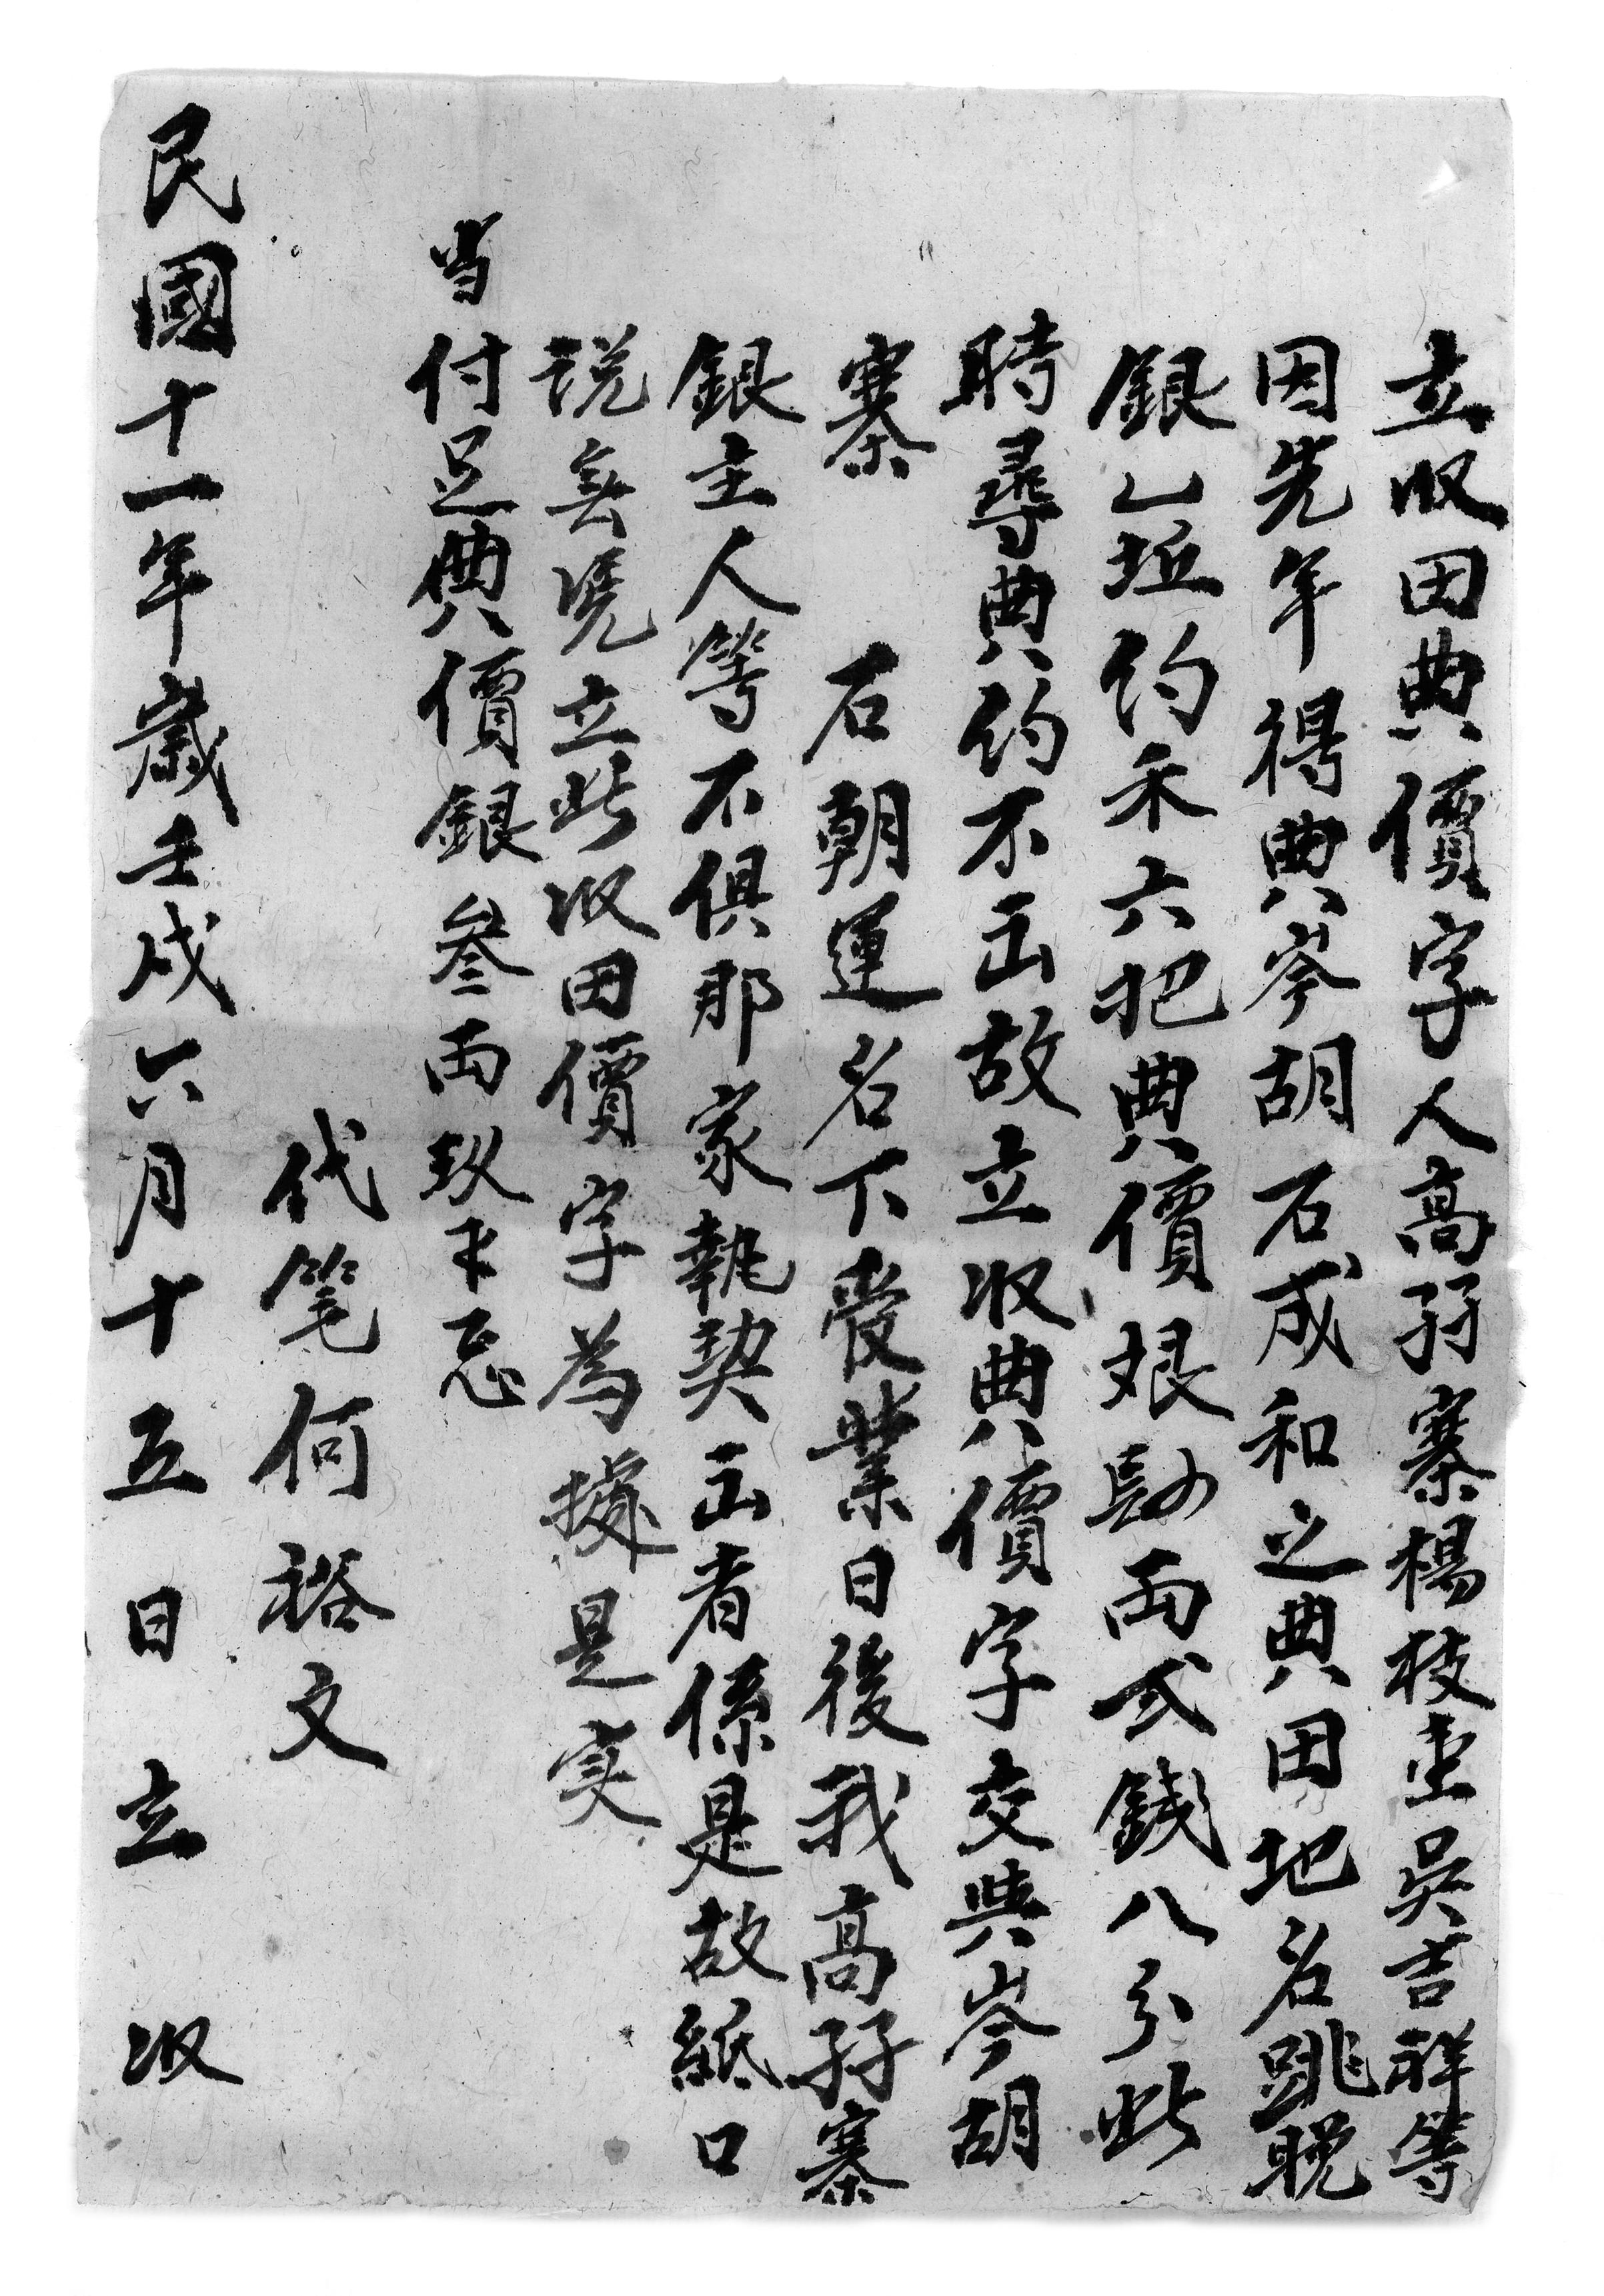 立収田典價字人高孖寨楊枝䞓吳吉祥等
因先年得典岑胡石成和之典田地名跳晚
銀乚坵約禾六把典價銀肆両弍錢八分此
時尋典約不出故立収典價字交與岑胡
寨 石朝運名下管業日後我高孖寨
銀主人等不俱那家執契出者係是故紙口
説無凴立此収田價字為據是实
当付足典價銀叁両玖未忘
代笔何裕文
民國十一年歲壬戌六月十五日 立 収